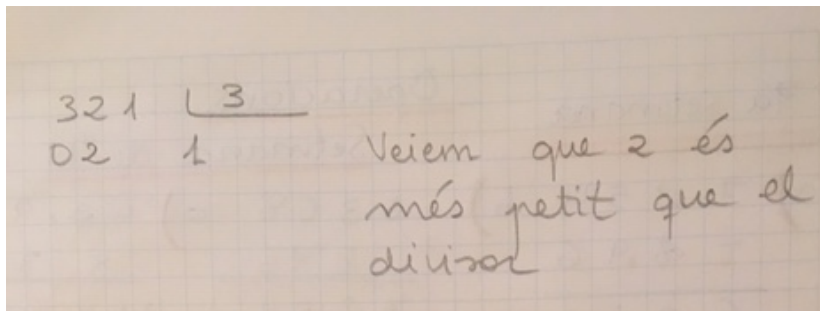 321 3
02 1 Veiem que 2 és
més petit que el
divisor